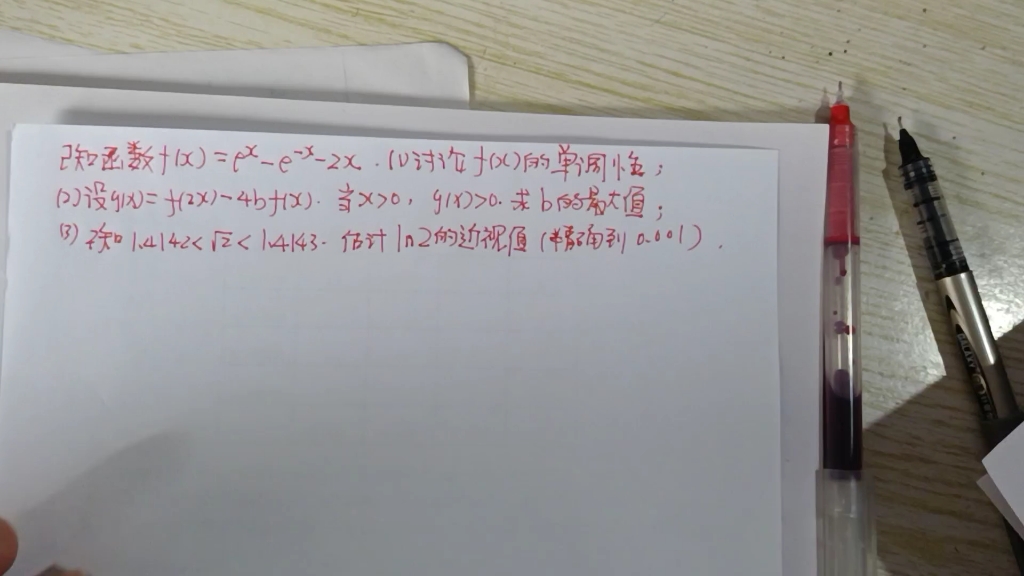 已知函数f(x)=e^x-e^{-x}-2x.(1)讨论f(x)的单调性;
(2)设g(x)=f(2x)-4bf(x).当x>0,g(x)>0.求b的最大值;
(3)已知1.4142<√2<1.4143.估计ln2的近视值(精确到0.001).